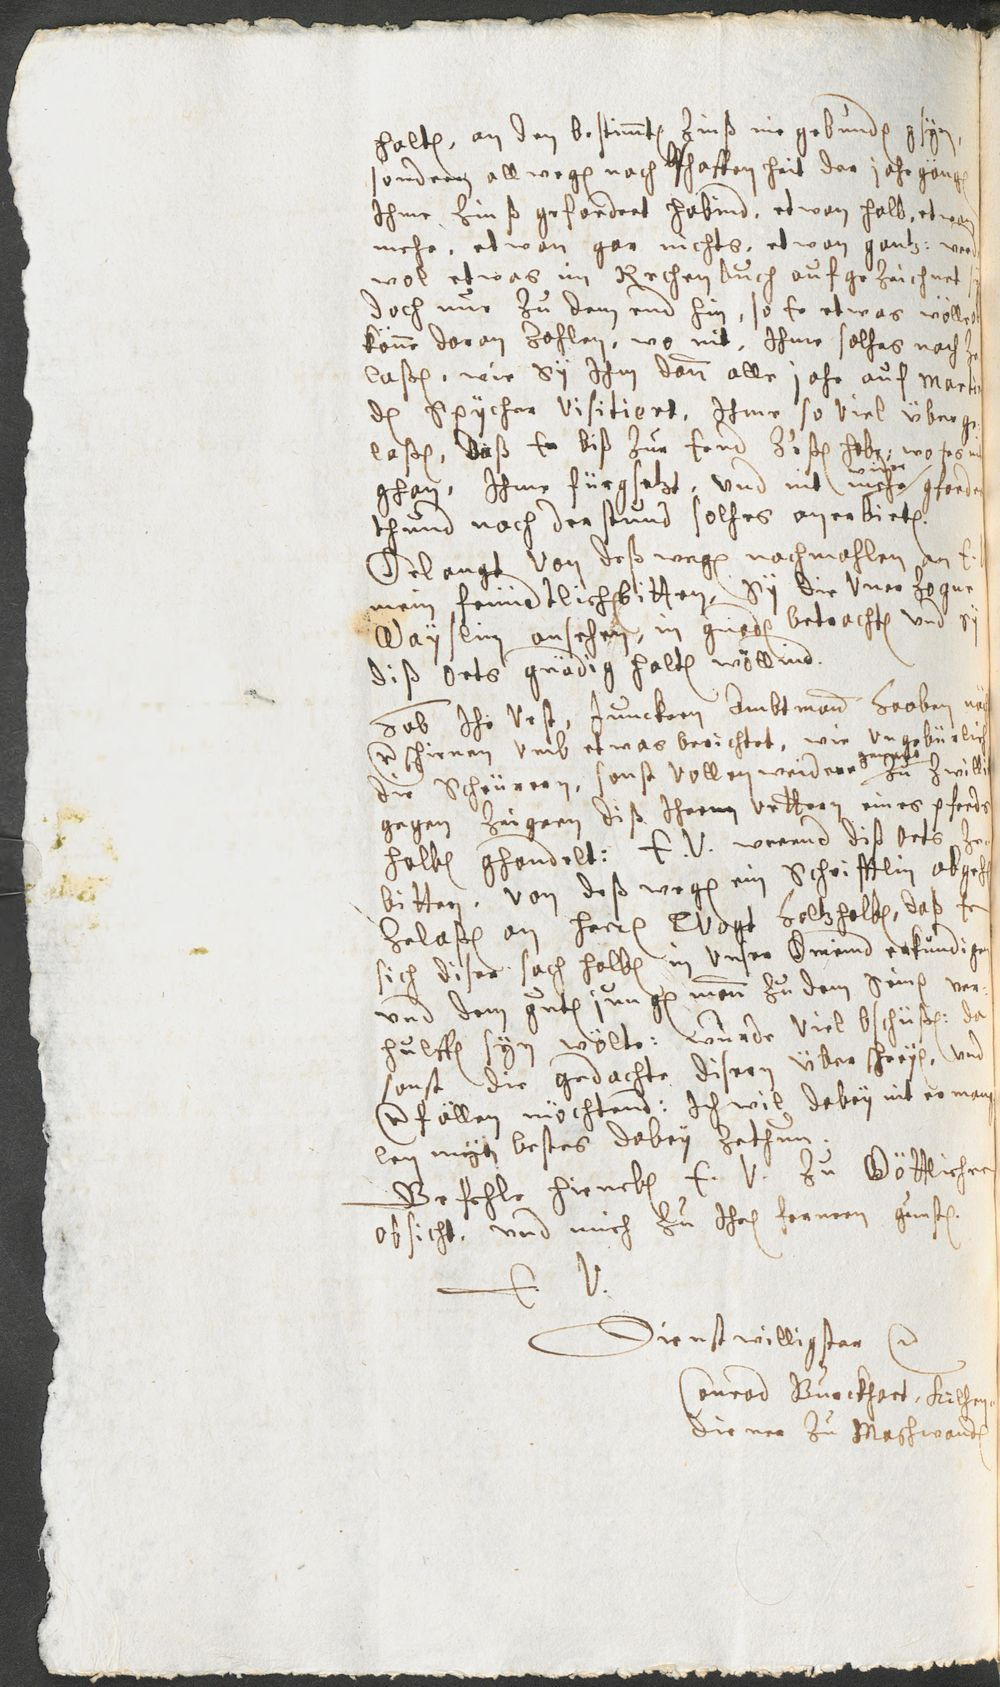 halten, an den bestimten Zinß nie gebunden gsyn,
sondern allwegen nach bschaffenheit der jahrgängen
Ihme Zinß geforderet habind, etwan halb, etwan
mehr, etwan gar nichts, etwan gantz: werd
wol etwas im Rechenbuch aufgezeichnet
doch nur zu dem end hin, so er etwas wölle od
könne daran zahlen, wo nit, Ihme solches nach ze
laßen, wie sy Ihm dann alle jahr auf Martin
den Spycher visitiert, Ihme so viel überge-
laßen, daß er biß zur ernd zeßen habe, wo ers nit
ghan, Ihme fürgsetzt, und nit wider gforderet
thund nach der stund solches anerbieten.
Gelangt von deßwegen nachmahlen an E. V.
mein freündtlich bitten, sy die unerzogne
Wayslin ansehen, in gnaden betrachten und sy
diß orts gnädig halten wöllind.
Hab Ihr Vest, Junckern Ambtman
verschienen umb etwas berichtet, wie ungebürlich
die Scheürern, sonst Vollenweider zu Zwilli
gegen zeigern diß Ihrem vettern eines pferds
halben ghandelt: E. V. werend diß orts ze-
bitten, von deßwegen ein Schrifftlin abgehn
zelaßen an Herren Vogt Holtzhalben, daß er
sich diser sach halben in unser Gmeind erkundigen
und dem guten jungen man zu dem Seinen ver-
hulffen syn wölte: wurde viel bschüßen: da
sonst die gedachte disern überschreyen, und
verfällen möchtend: Ich wil darbey nit erman
len myn bestes dabey zethun.
Befehle hiemit E. V. zu Göttlicher
obsicht, und mich zu Ihren ferneren gunsten.
E. V.
Dienstwilligster
Conrad Burckhart, kilchen-
diener zu Maschwanden